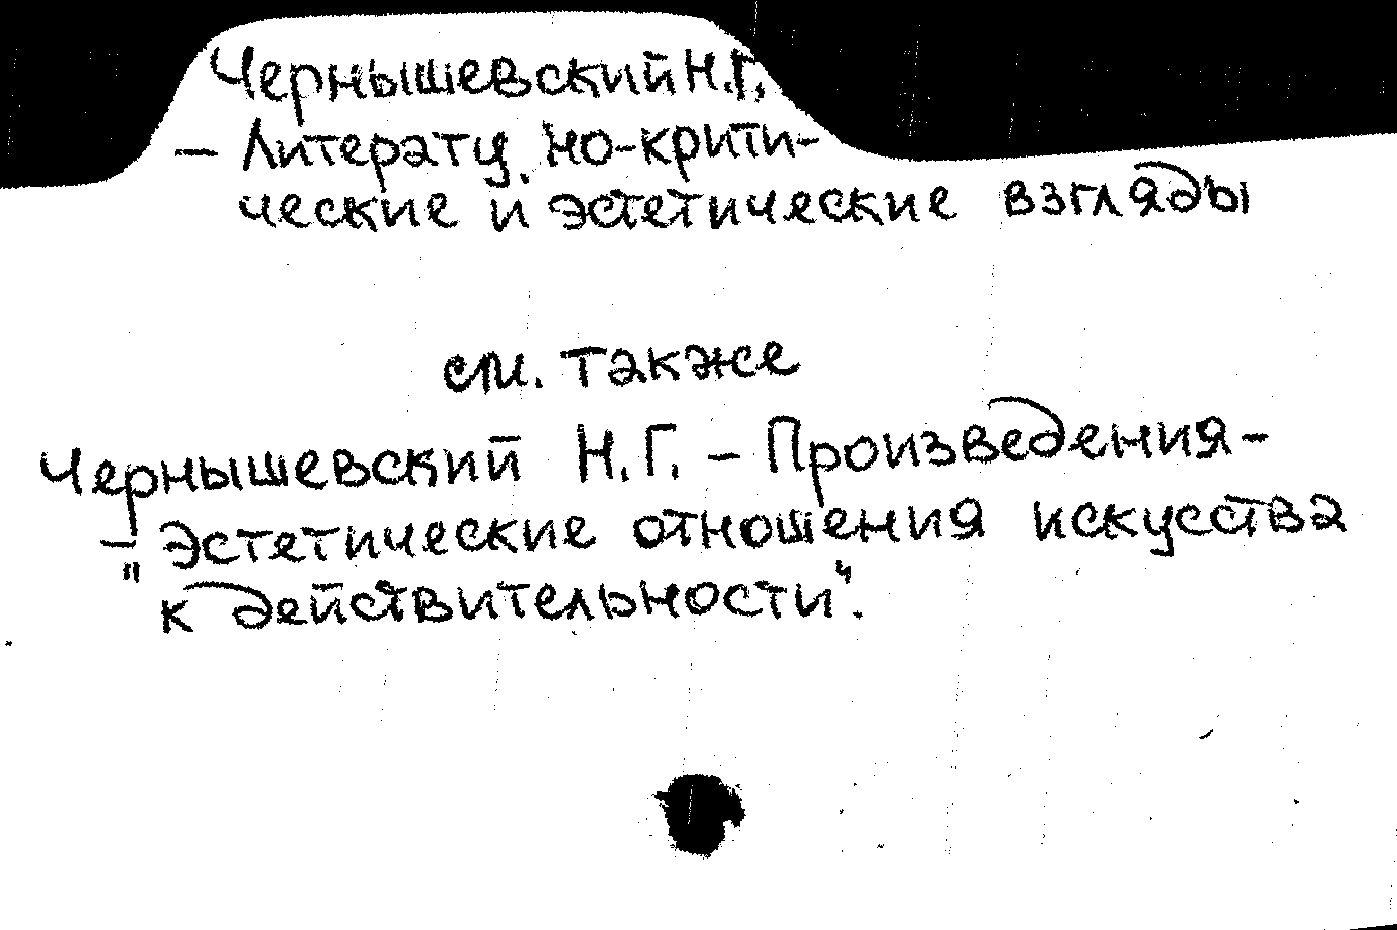 Чернышевский Н.Г.
— Литерату но-крити-
ческие и эстетические взгляды
см. также
Чернышевский Н.Г. – Произведения –
– Эстетические отношения искусства
" к действительности".